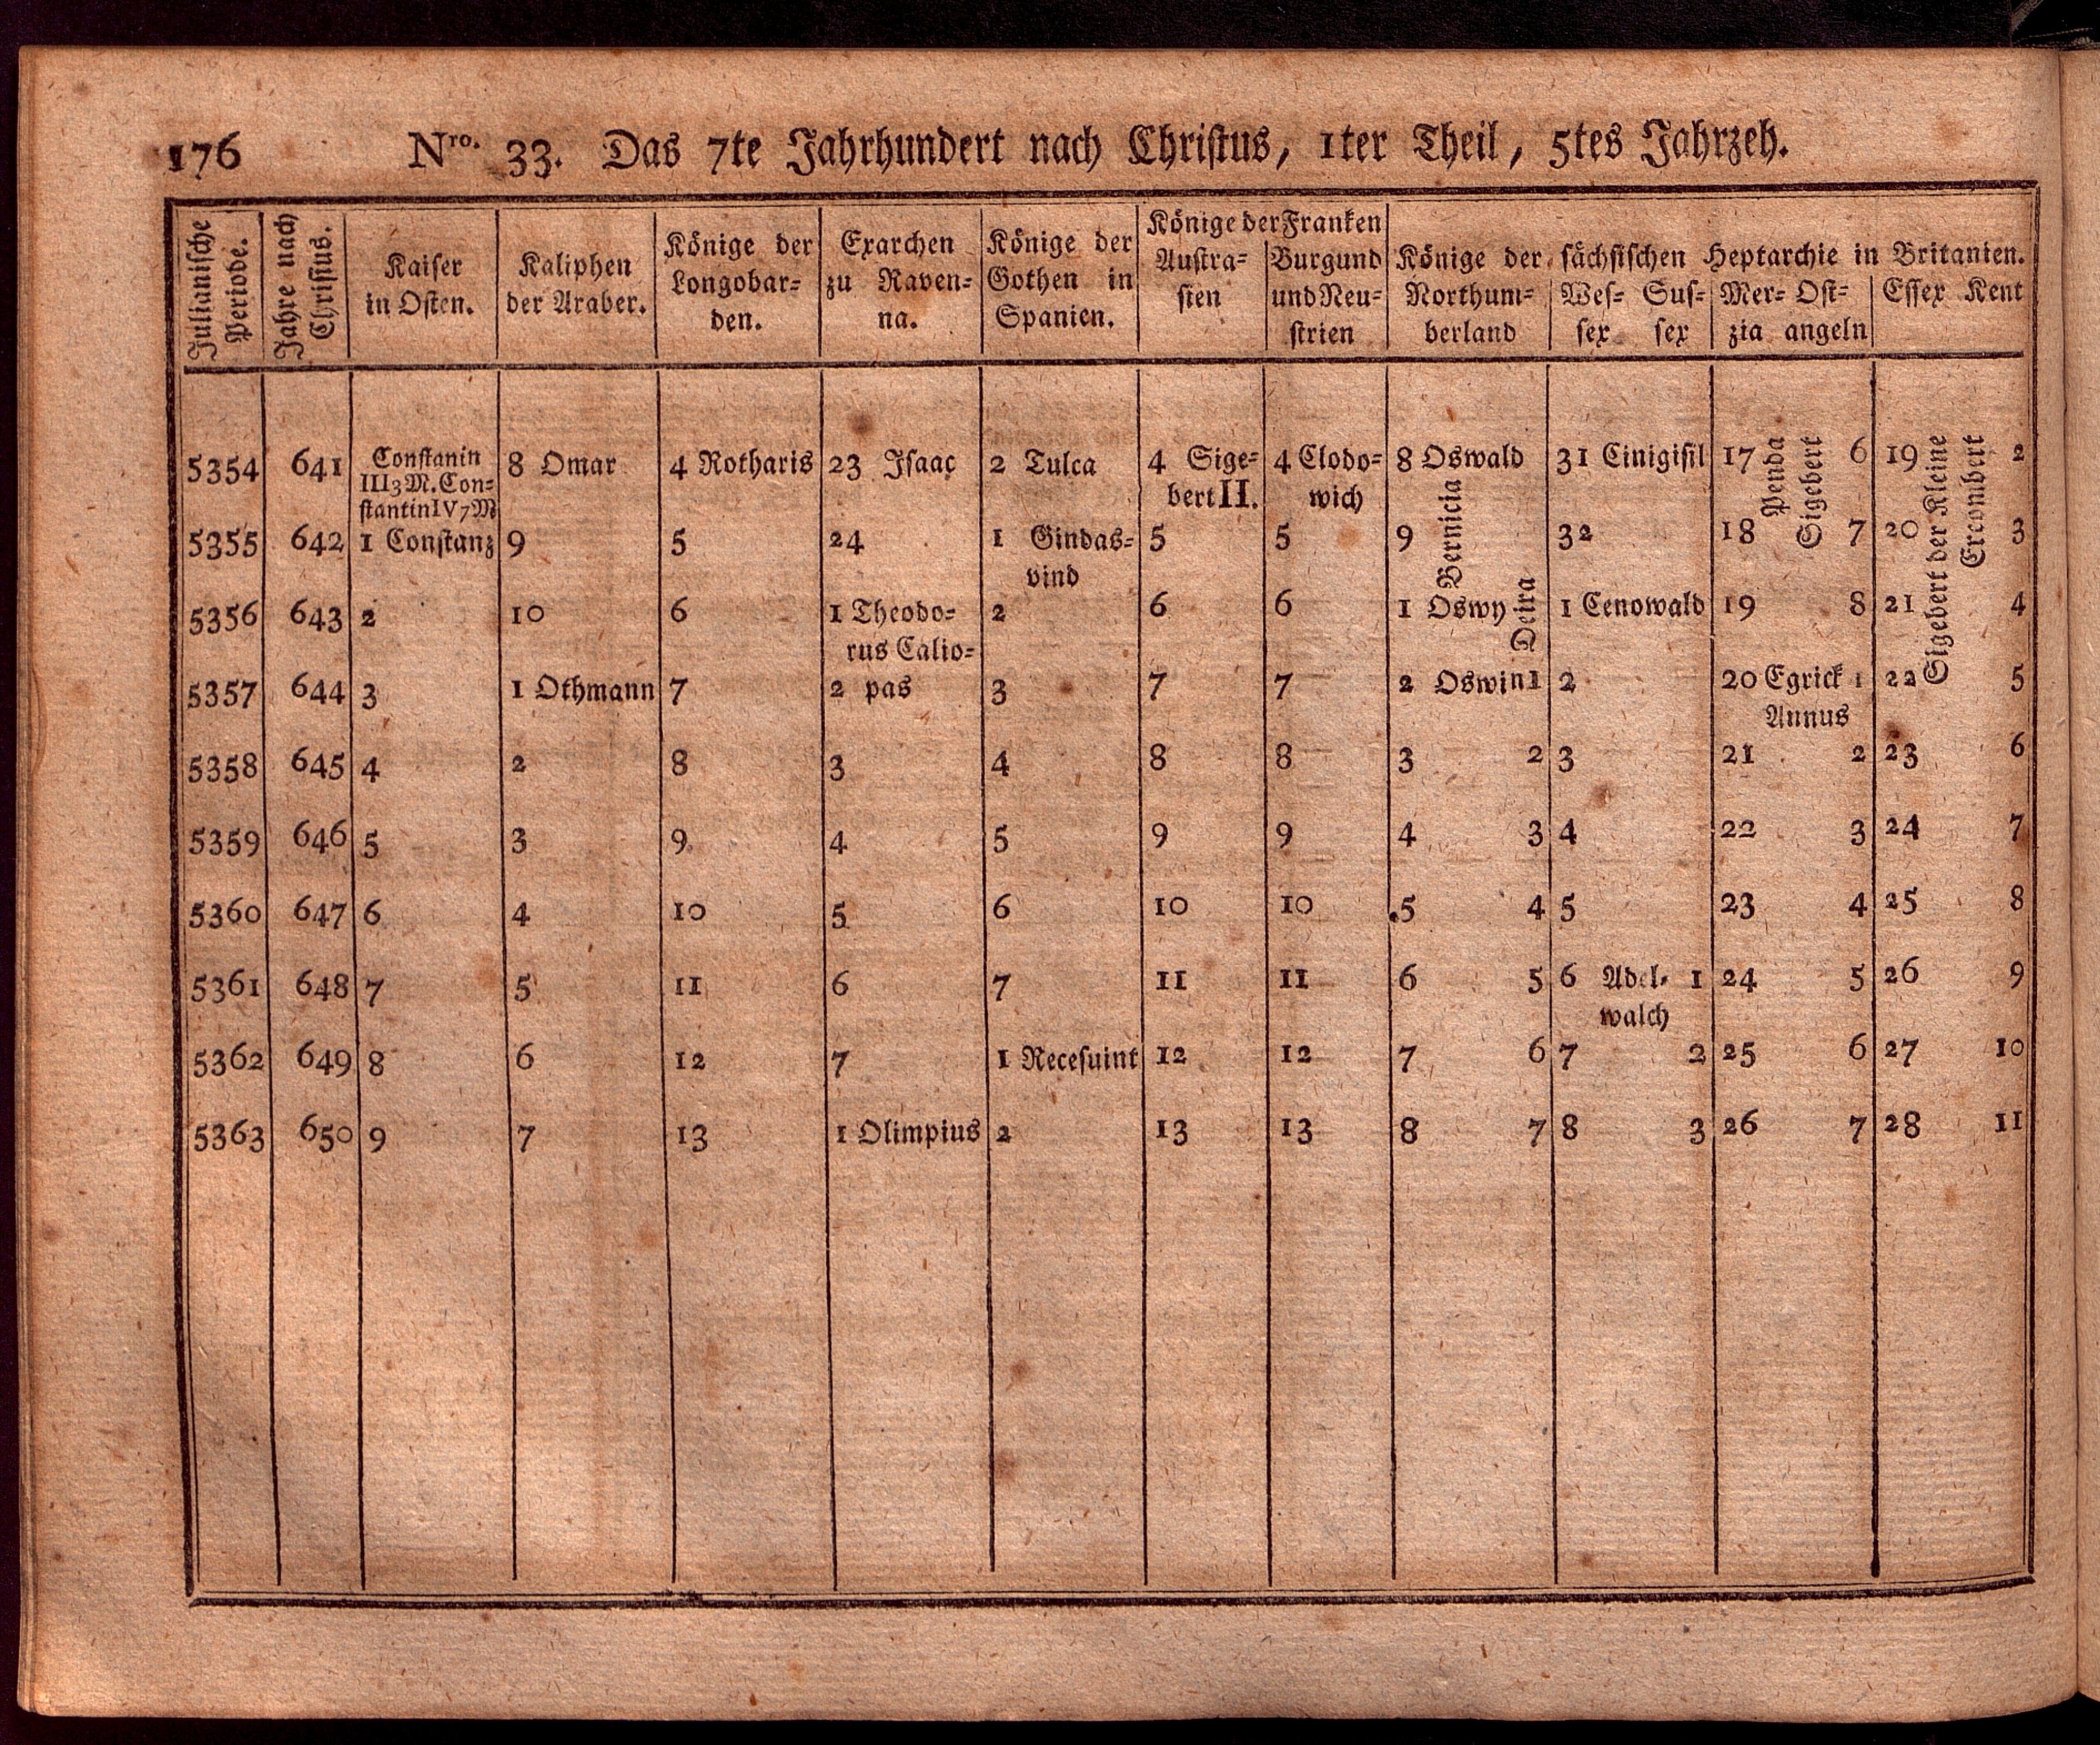 176 Nro. 33. Das 7te Jahrhundert nach Christus, 1ter Theil, 5tes Jahrzeh.
Julianische Periode.
Jahre nach Christus.
Kaiser
in Osten.
Kaliphen
der Araber.
Könige der
Longobar-
den.
Exarchen
zu Raven-
na.
Könige der
Gothen in
Spanien.
Könige der Franken
Austra-
sien
Burgund
und Neu-
strien
Könige der sächsischen Heptarchie in Britanien.
Northum-
berland
Wes- Sus-
sex sex
Mer- Ost-
zia angeln
Essex Kent
5354 641 Constanin 8 Omar 4 Rotharis 23 Isaac 2 Tulca 4 Sige- 4 Clodo- 8 Oswald 31 Cinigisil 17 Penda Sigebert 6 19 Sigebert der Kleine Ercombert 2
III 3 M. Con- bert II. wich Bernicia
stantin IV 7 M
5355 642 1 Constanz 9 5 24 1 Gindas- 5 5 9 32 18 7 20 3
vind
5356 643 2 10 6 1 Theodo- 2 6 6 1 Oswy Deira 1 Cenowald 19 8 21 4
rus Calio-
5357 644 3 1 Othmann 7 2 pas 3 7 7 2 Oswin 1 2 20 Egrick 1 22 5
Annus
5358 645 4 2 8 3 4 8 8 3 2 3 21 2 23 6
5359 646 5 3 9 4 5 9 9 4 3 4 22 3 24 7
5360 647 6 4 10 5 6 10 10 5 4 5 23 4 25 8
5361 648 7 5 11 6 7 11 11 6 5 6 Adel- 1 24 5 26 9
walch
5362 649 8 6 12 7 1 Recesuint 12 12 7 6 7 2 25 6 27 10
5363 650 9 7 13 1 Olimpius 2 13 13 8 7 8 3 26 7 28 11